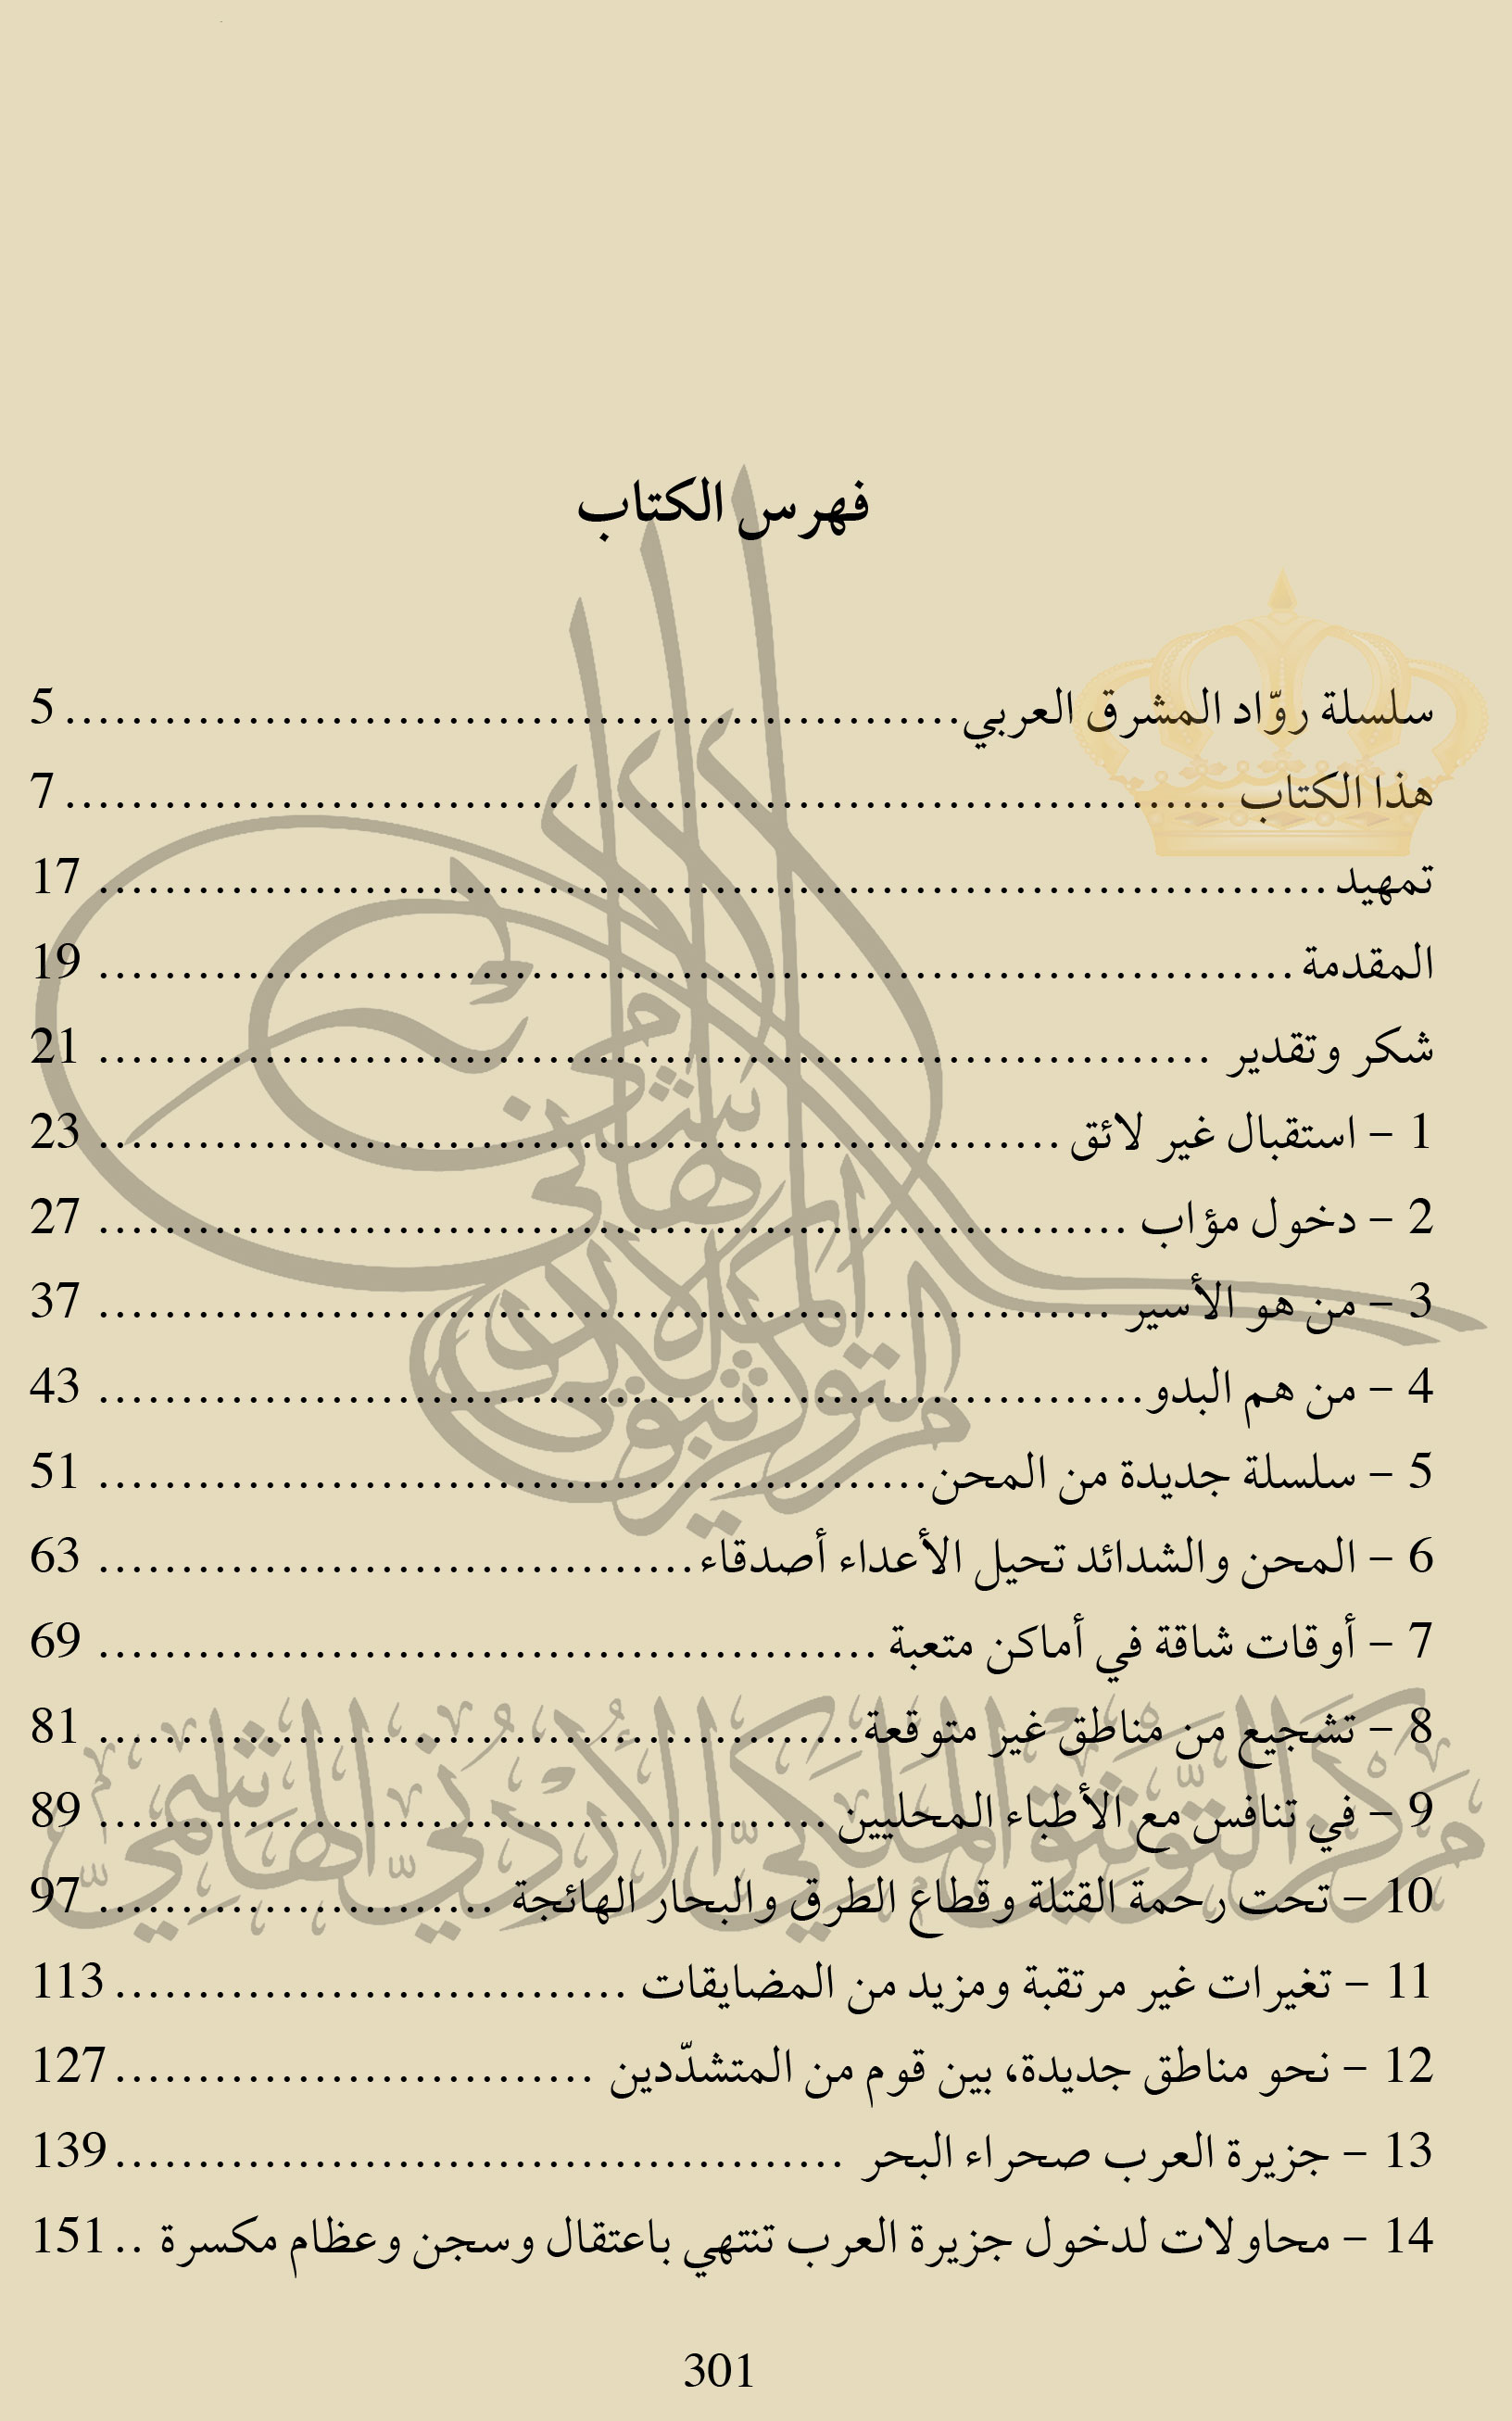 فهرس الكتاب
سلسلة روّاد المشرق العربي ........ 5
هذا الكتاب ........ 7
تمهيد ........ 17
المقدمة ........ 19
شكر وتقدير ........ 21
1 – استقبال غير لائق ........ 23
2 – دخول مؤاب ........ 27
3 – من هو الأسير ........ 37
4 – من هم البدو ........ 43
5 – سلسلة جديدة من المحن ........ 51
6 – المحن والشدائد تحيل الأعداء أصدقاء ........ 63
7 – أوقات شاقة في أماكن متعبة ........ 69
8 – تشجيع من مناطق غير متوقعة ........ 81
9 – في تنافس مع الأطباء المحليين ........ 89
10 – تحت رحمة القتلة وقطاع الطرق والبحار الهائجة ........ 97
11 – تغيرات غير مرتقبة ومزيد من المضايقات ........ 113
12 – نحو مناطق جديدة، بين قوم من المتشدّدين ........ 127
13 – جزيرة العرب صحراء البحر ........ 139
14 – محاولات لدخول جزيرة العرب تنتهي باعتقال وسجن وعظام مكسرة .. 151
مَركز التوثيق الملكي الأردني الهاشمي
301